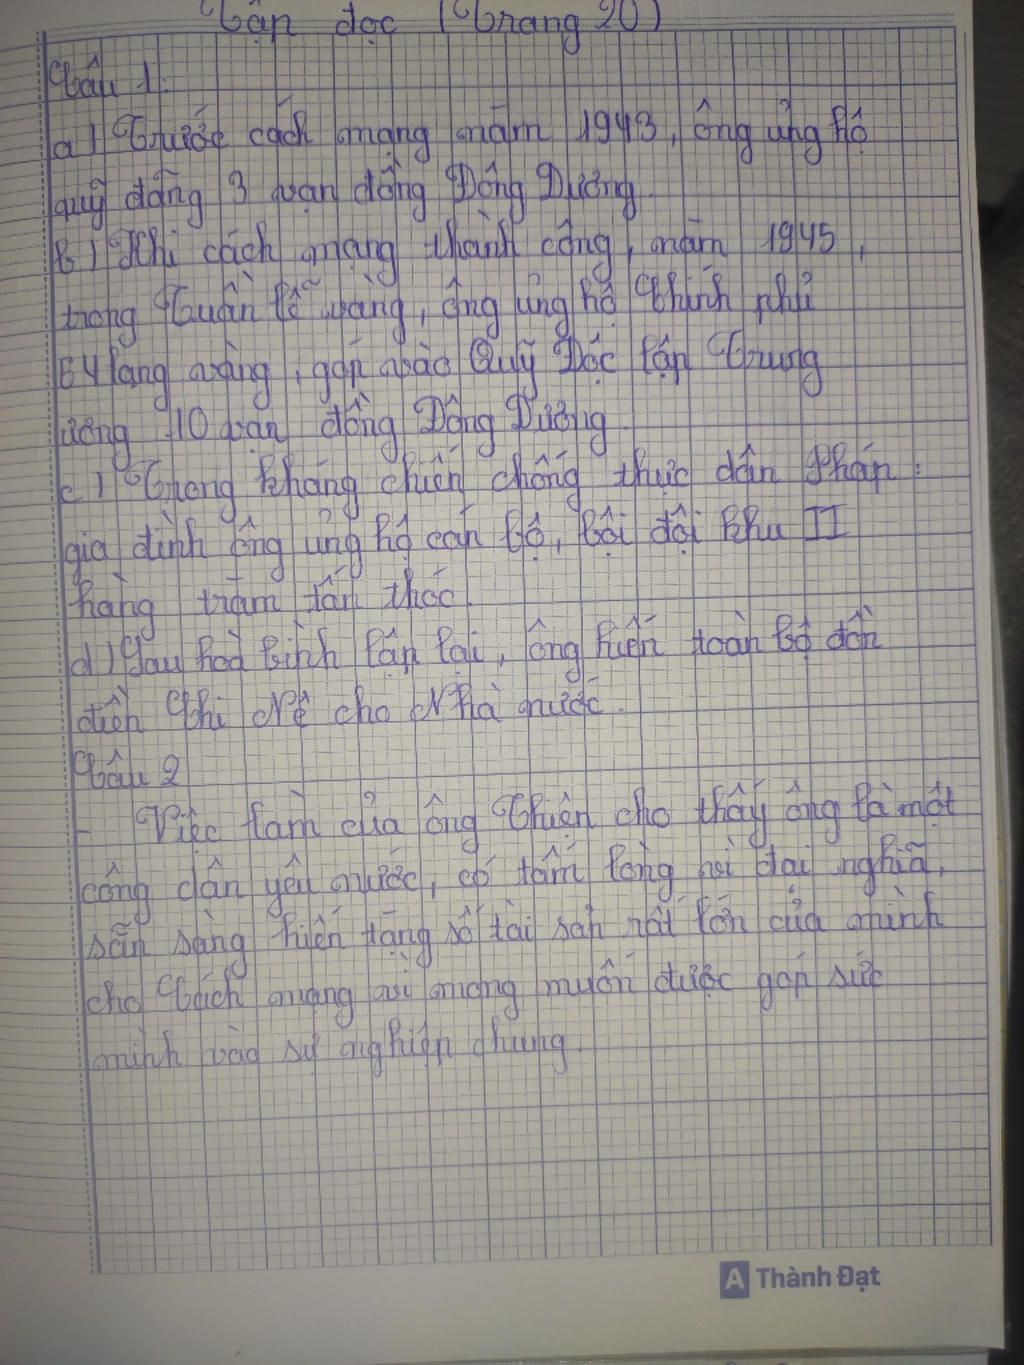 Tập đọc (Trang 20)
Câu 1:
a) Trước cách mạng năm 1943, ông ủng hộ
quỹ đảng 3 vạn đồng Đông Dương.
b) Khi cách mạng thành công, năm 1945,
trong Tuần lễ vàng, ông ủng hộ Chính phủ
64 lạng vàng, góp vào Quỹ Độc lập Trung
ương 10 vạn đồng Đông Dương.
c) Trong kháng chiến chống thực dân Pháp:
gia đình ông ủng hộ cán bộ, bội đội khu II
hàng trăm tấn thóc.
d) Sau hoà bình lập lại, ông hiến toàn bộ đồn
điền Chi Nê cho Nhà nước.
Câu 2
- Việc làm của ông Thiện cho thấy ông là một
công dân yêu nước, có tấm lòng vì đại nghĩa,
sẵn sàng hiến tặng số tài sản rất lớn của mình
cho Cách mạng vì mong muốn được góp sức
mình vào sự nghiệp chung.
A Thành Đạt